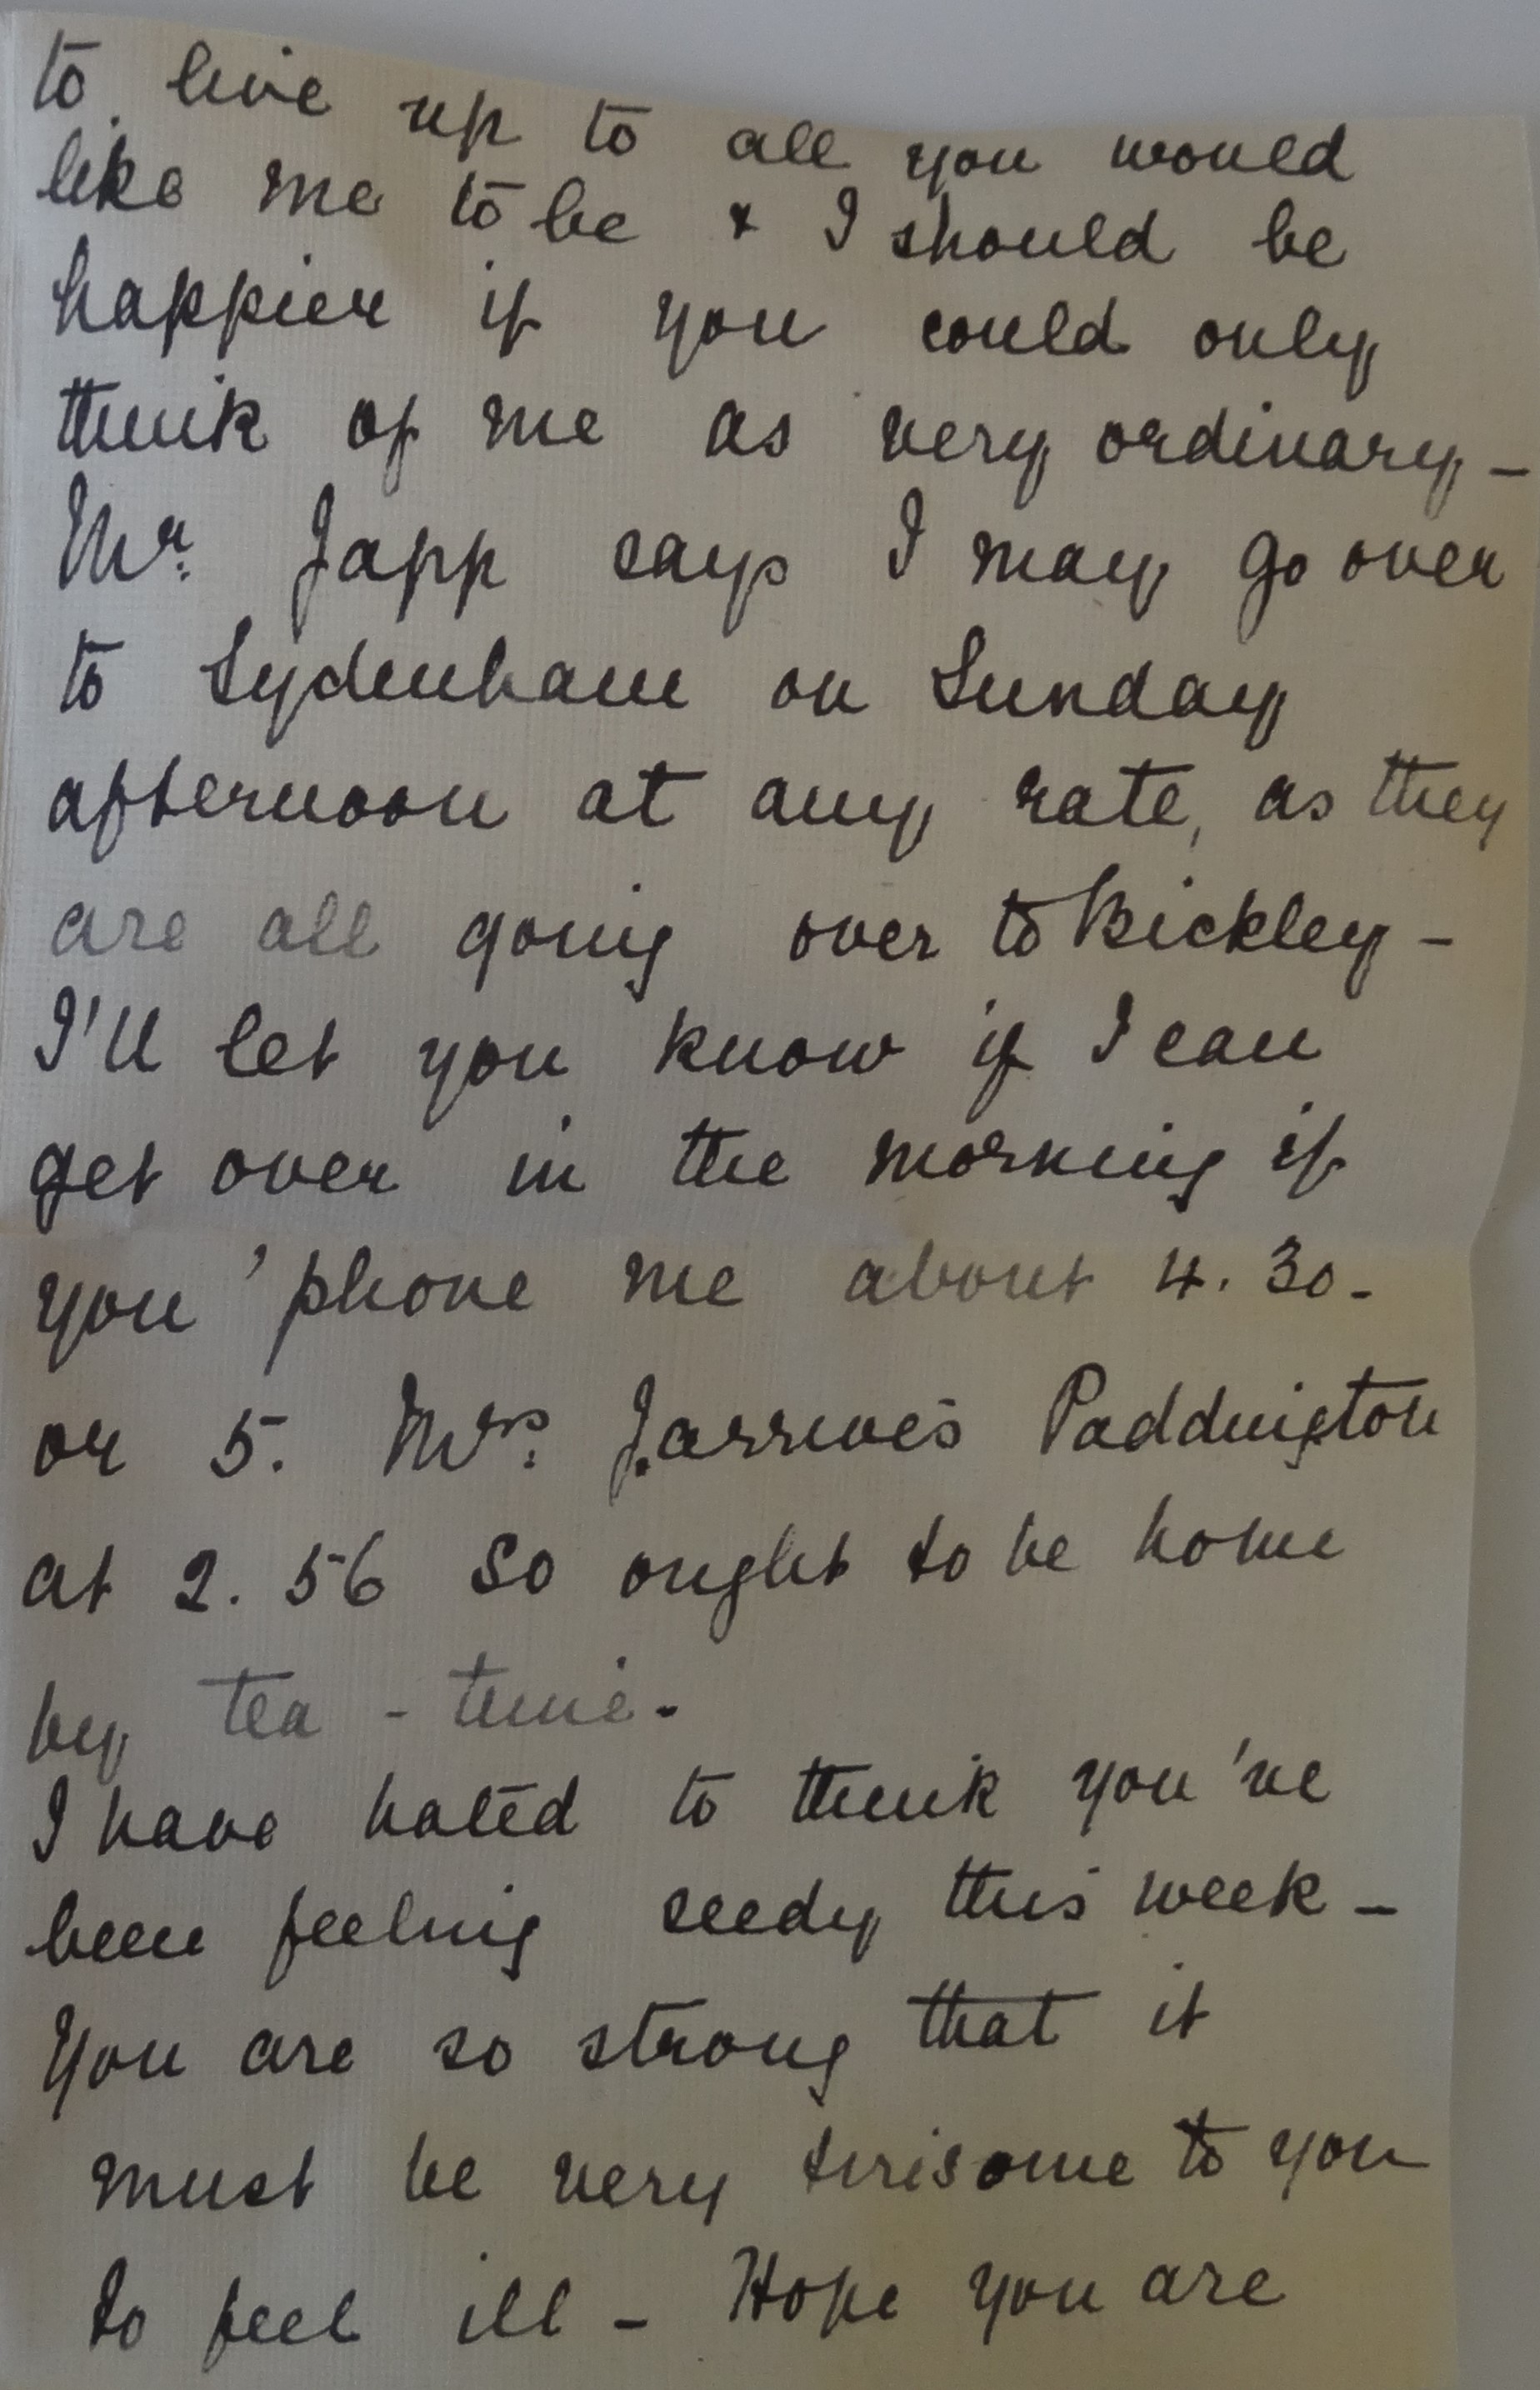 to live up to all you would
like me to be & I should be
happier if you could only
think of me as very ordinary -
Mr. Japp says I may go over
to Sydenham on Sunday
afternoon at any rate, as they
are all going over to Bickley -
I'll let you know if I can
get over in the morning if
you 'phone me about 4.30.
or 5. Mrs. J. arrives Paddington
at 2.56 so ought to be home
by tea-time.
I have hated to think you've
been feeling seedy this week -
You are so strong that it
must be very tiresome to you
to feel ill - Hope you are